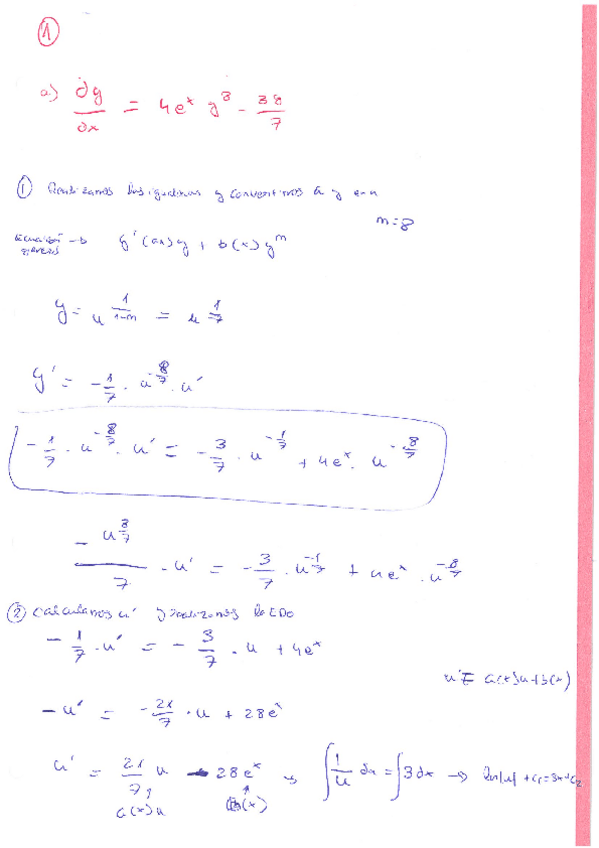 1
a) ∂y/∂x = 4e^x y^8 - 3y/7
① Realizamos las igualdades y convertimos a y en u
m=8
Ecuación general → y'(ax)y + b(x)y^m
y = u^(1/(1-m)) = u^(1/7)
y' = -1/7 · u^(-8/7) · u'
-1/7 · u^(-8/7) · u' = -3/7 · u^(-1/7) + 4e^x · u^(-8/7)
-u^(8/7)/7 · u' = -3/7 · u^(-1/7) + 4e^x · u^(-8/7)
② Calculamos u' y realizamos la EDO
-1/7 · u' = -3/7 · u + 4e^x
u' = a(x)u+b(x)
-u' = -21/7 · u + 28e^x
u' = 21/7 u - 28e^x → ∫1/u dx = ∫3dx → ln|u| + c₁ = 3x+c₂
a(x)u b(x)